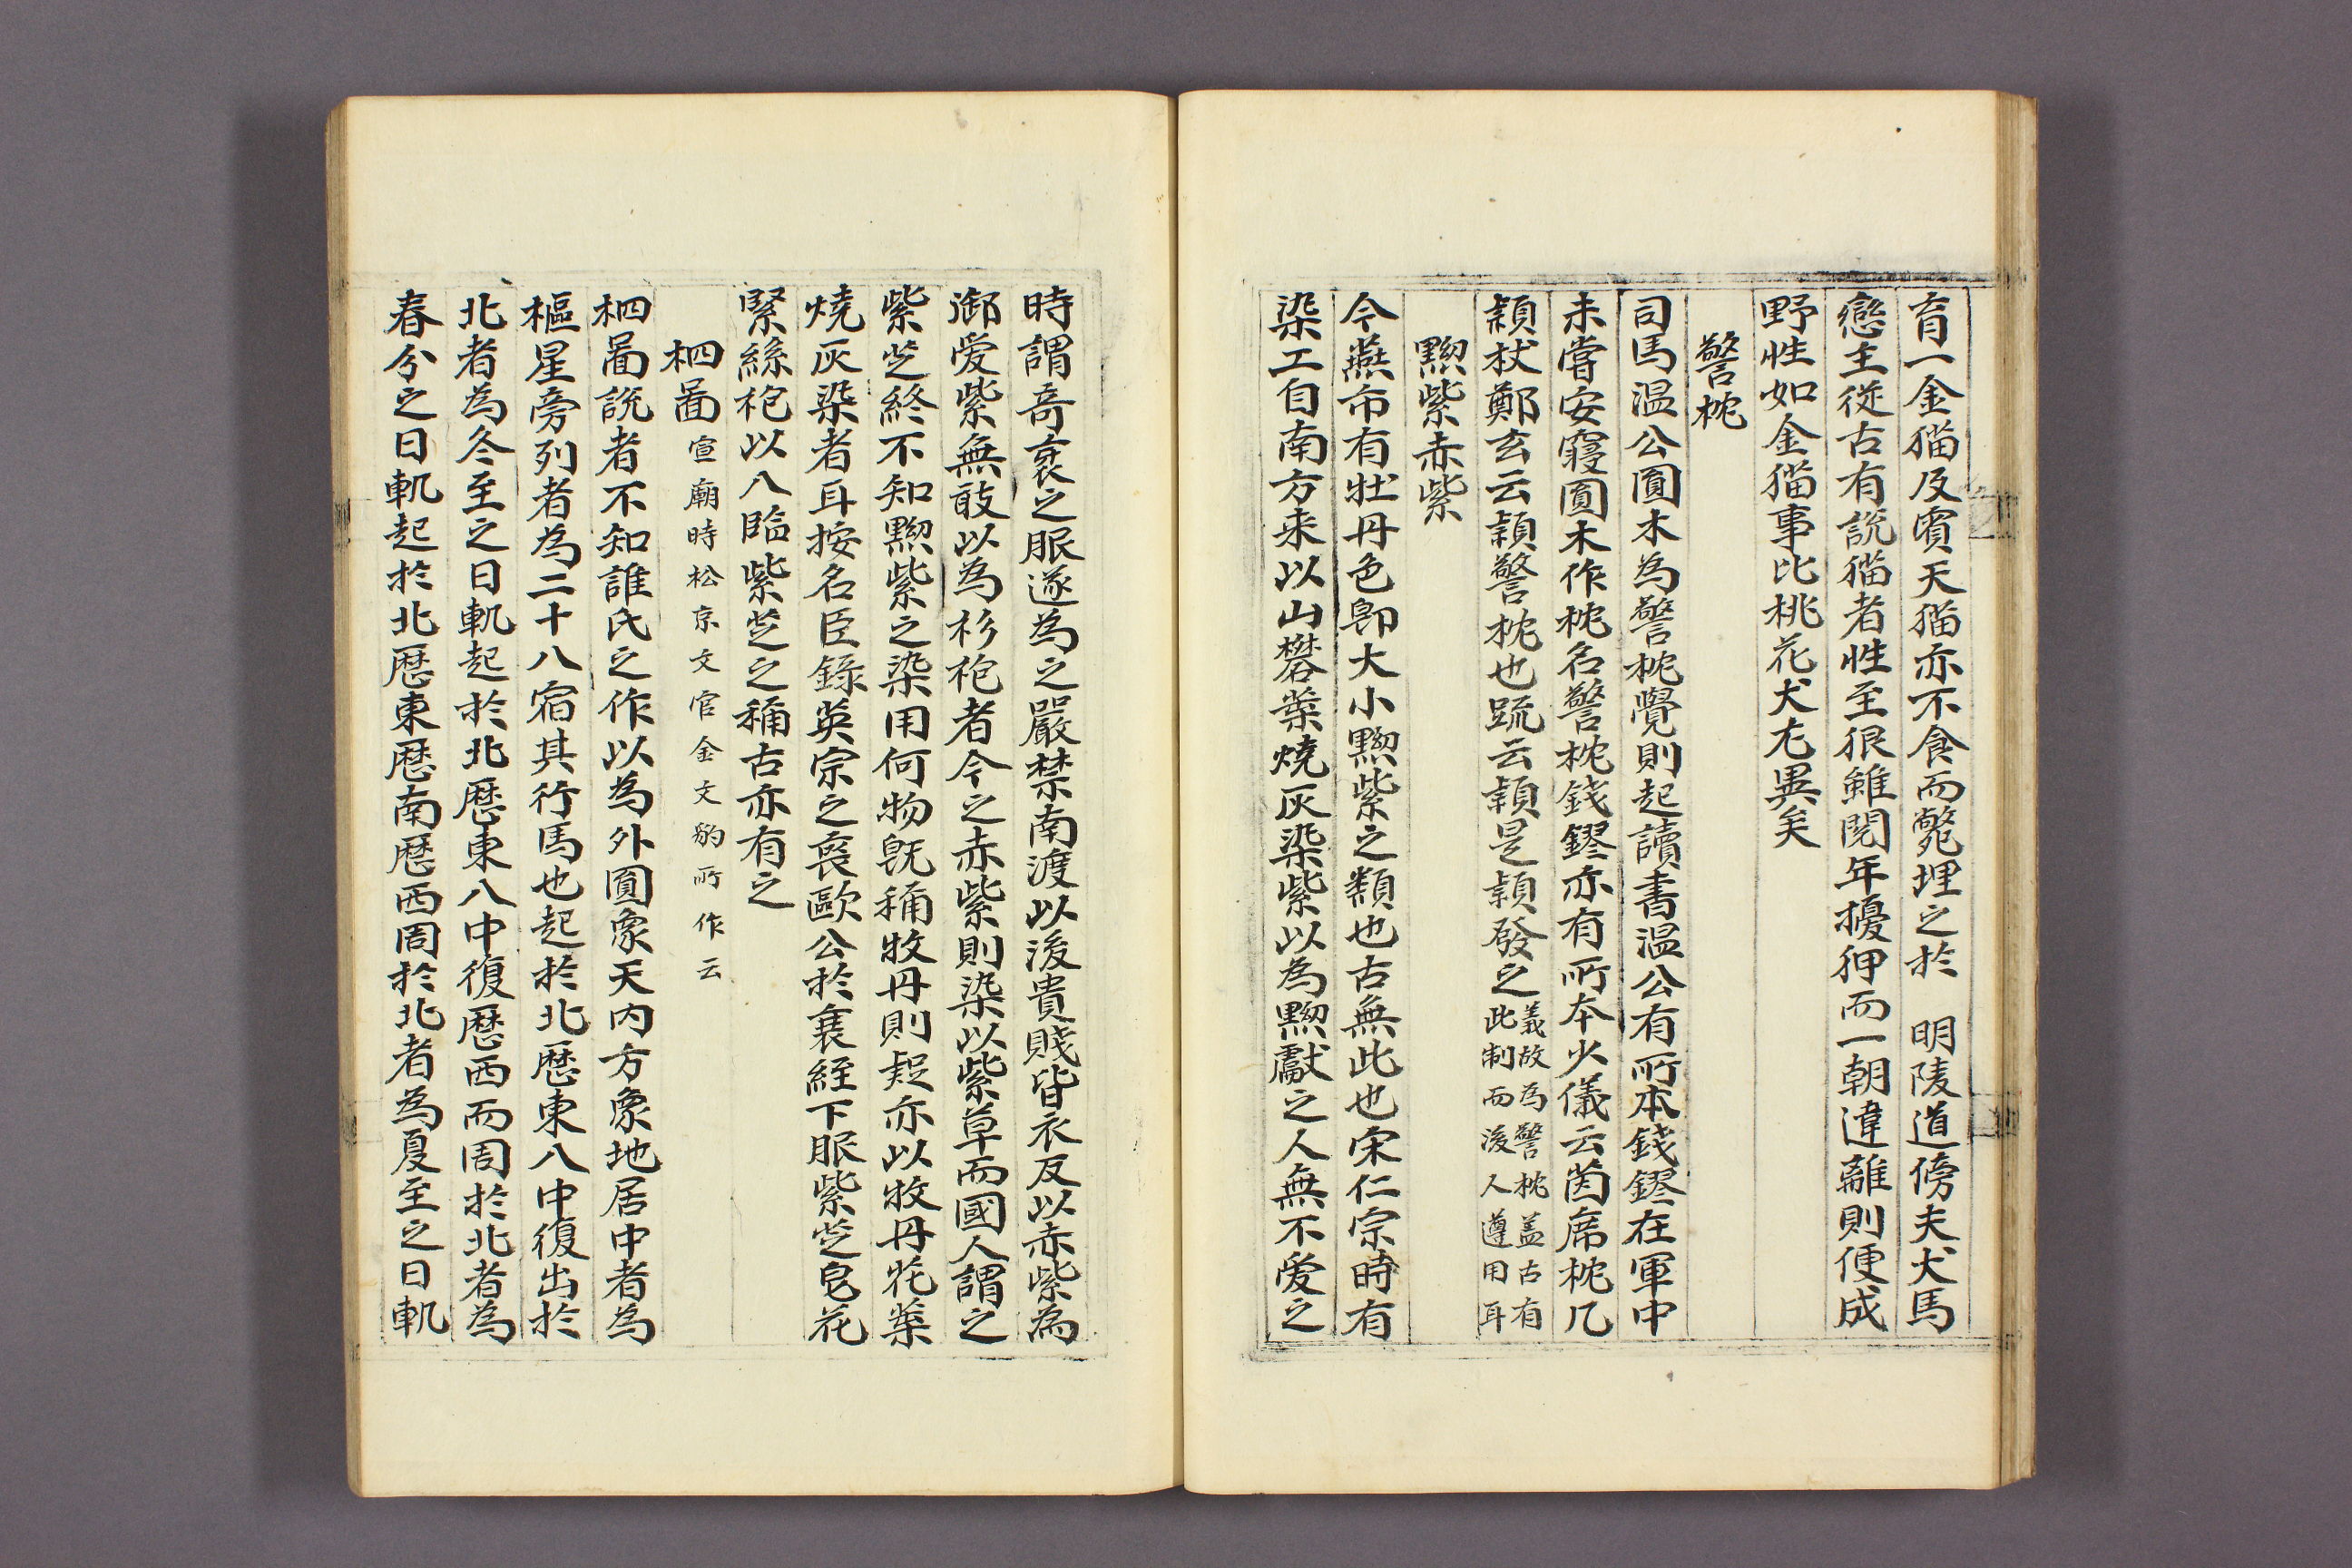 育一金猫及賓天猫亦不食而斃埋之於 明陵道傍夫犬馬
戀主從古有說猫者性至狠雖閱年擾狎而一朝違離則便成
野性如金猫事比桃花犬尤異矣
警枕
司馬温公圓木為警枕覺則起讀書温公有所本錢鏐在軍中
未嘗安寢圓木作枕名警枕錢鏐亦有所本少儀云茵席枕几
潁杖鄭玄云潁警枕也疏云潁是潁發之義故為警枕盖古有
此制而後人遵用耳
黝紫赤紫
今燕市有牡丹色卽大小黝紫之類也古無此也宋仁宗時有
染工自南方来以山礬葉燒灰染紫以為黝獻之人無不爱之
時謂奇衺之服遂為之嚴禁南渡以後貴賤皆衣反以赤紫為
御爱紫無敢以為衫袍者今之赤紫則染以紫草而國人謂之
紫芝終不知黝紫之染用何物旣稱牧丹則疑亦以牧丹花葉
燒灰染者耳按名臣錄英宗之喪歐公於衰絰下服紫芝皂花
緊絲袍以八臨紫芝之稱古亦有之
柶啚 宣廟時松京文官金文豹所作云
柶啚說者不知誰氏之作以為外圓象天内方象地居中者為
樞星旁列者為二十八宿其行馬也起於北歷東八中復出於
北者為冬至之日軌起於北歷東八中復歷西而周於北者為
春分之日軌起於北歷東歷南歷西周於北者為夏至之日軌